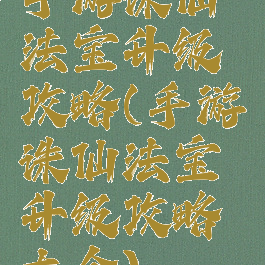 手游诛仙
法宝升级
攻略(手游
诛仙法宝
升级攻略
大全)